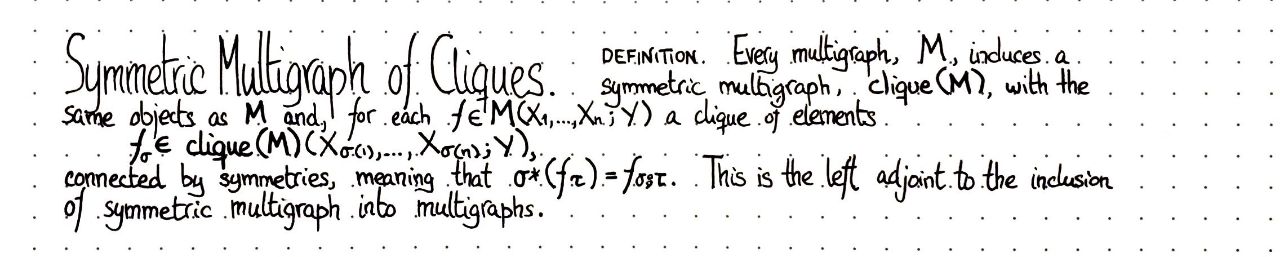 Symmetric Multigraph of Cliques. DEFINITION. Every multigraph, M, induces a
symmetric multigraph, clique(M), with the
same objects as M and, for each f∈M(X₁,...,Xₙ;Y) a clique of elements
f_σ ∈ clique(M)(X_σ(1),...,X_σ(n);Y),
connected by symmetries, meaning that σ*(f_τ)=f_σ⨟τ. This is the left adjoint to the inclusion
of symmetric multigraph into multigraphs.